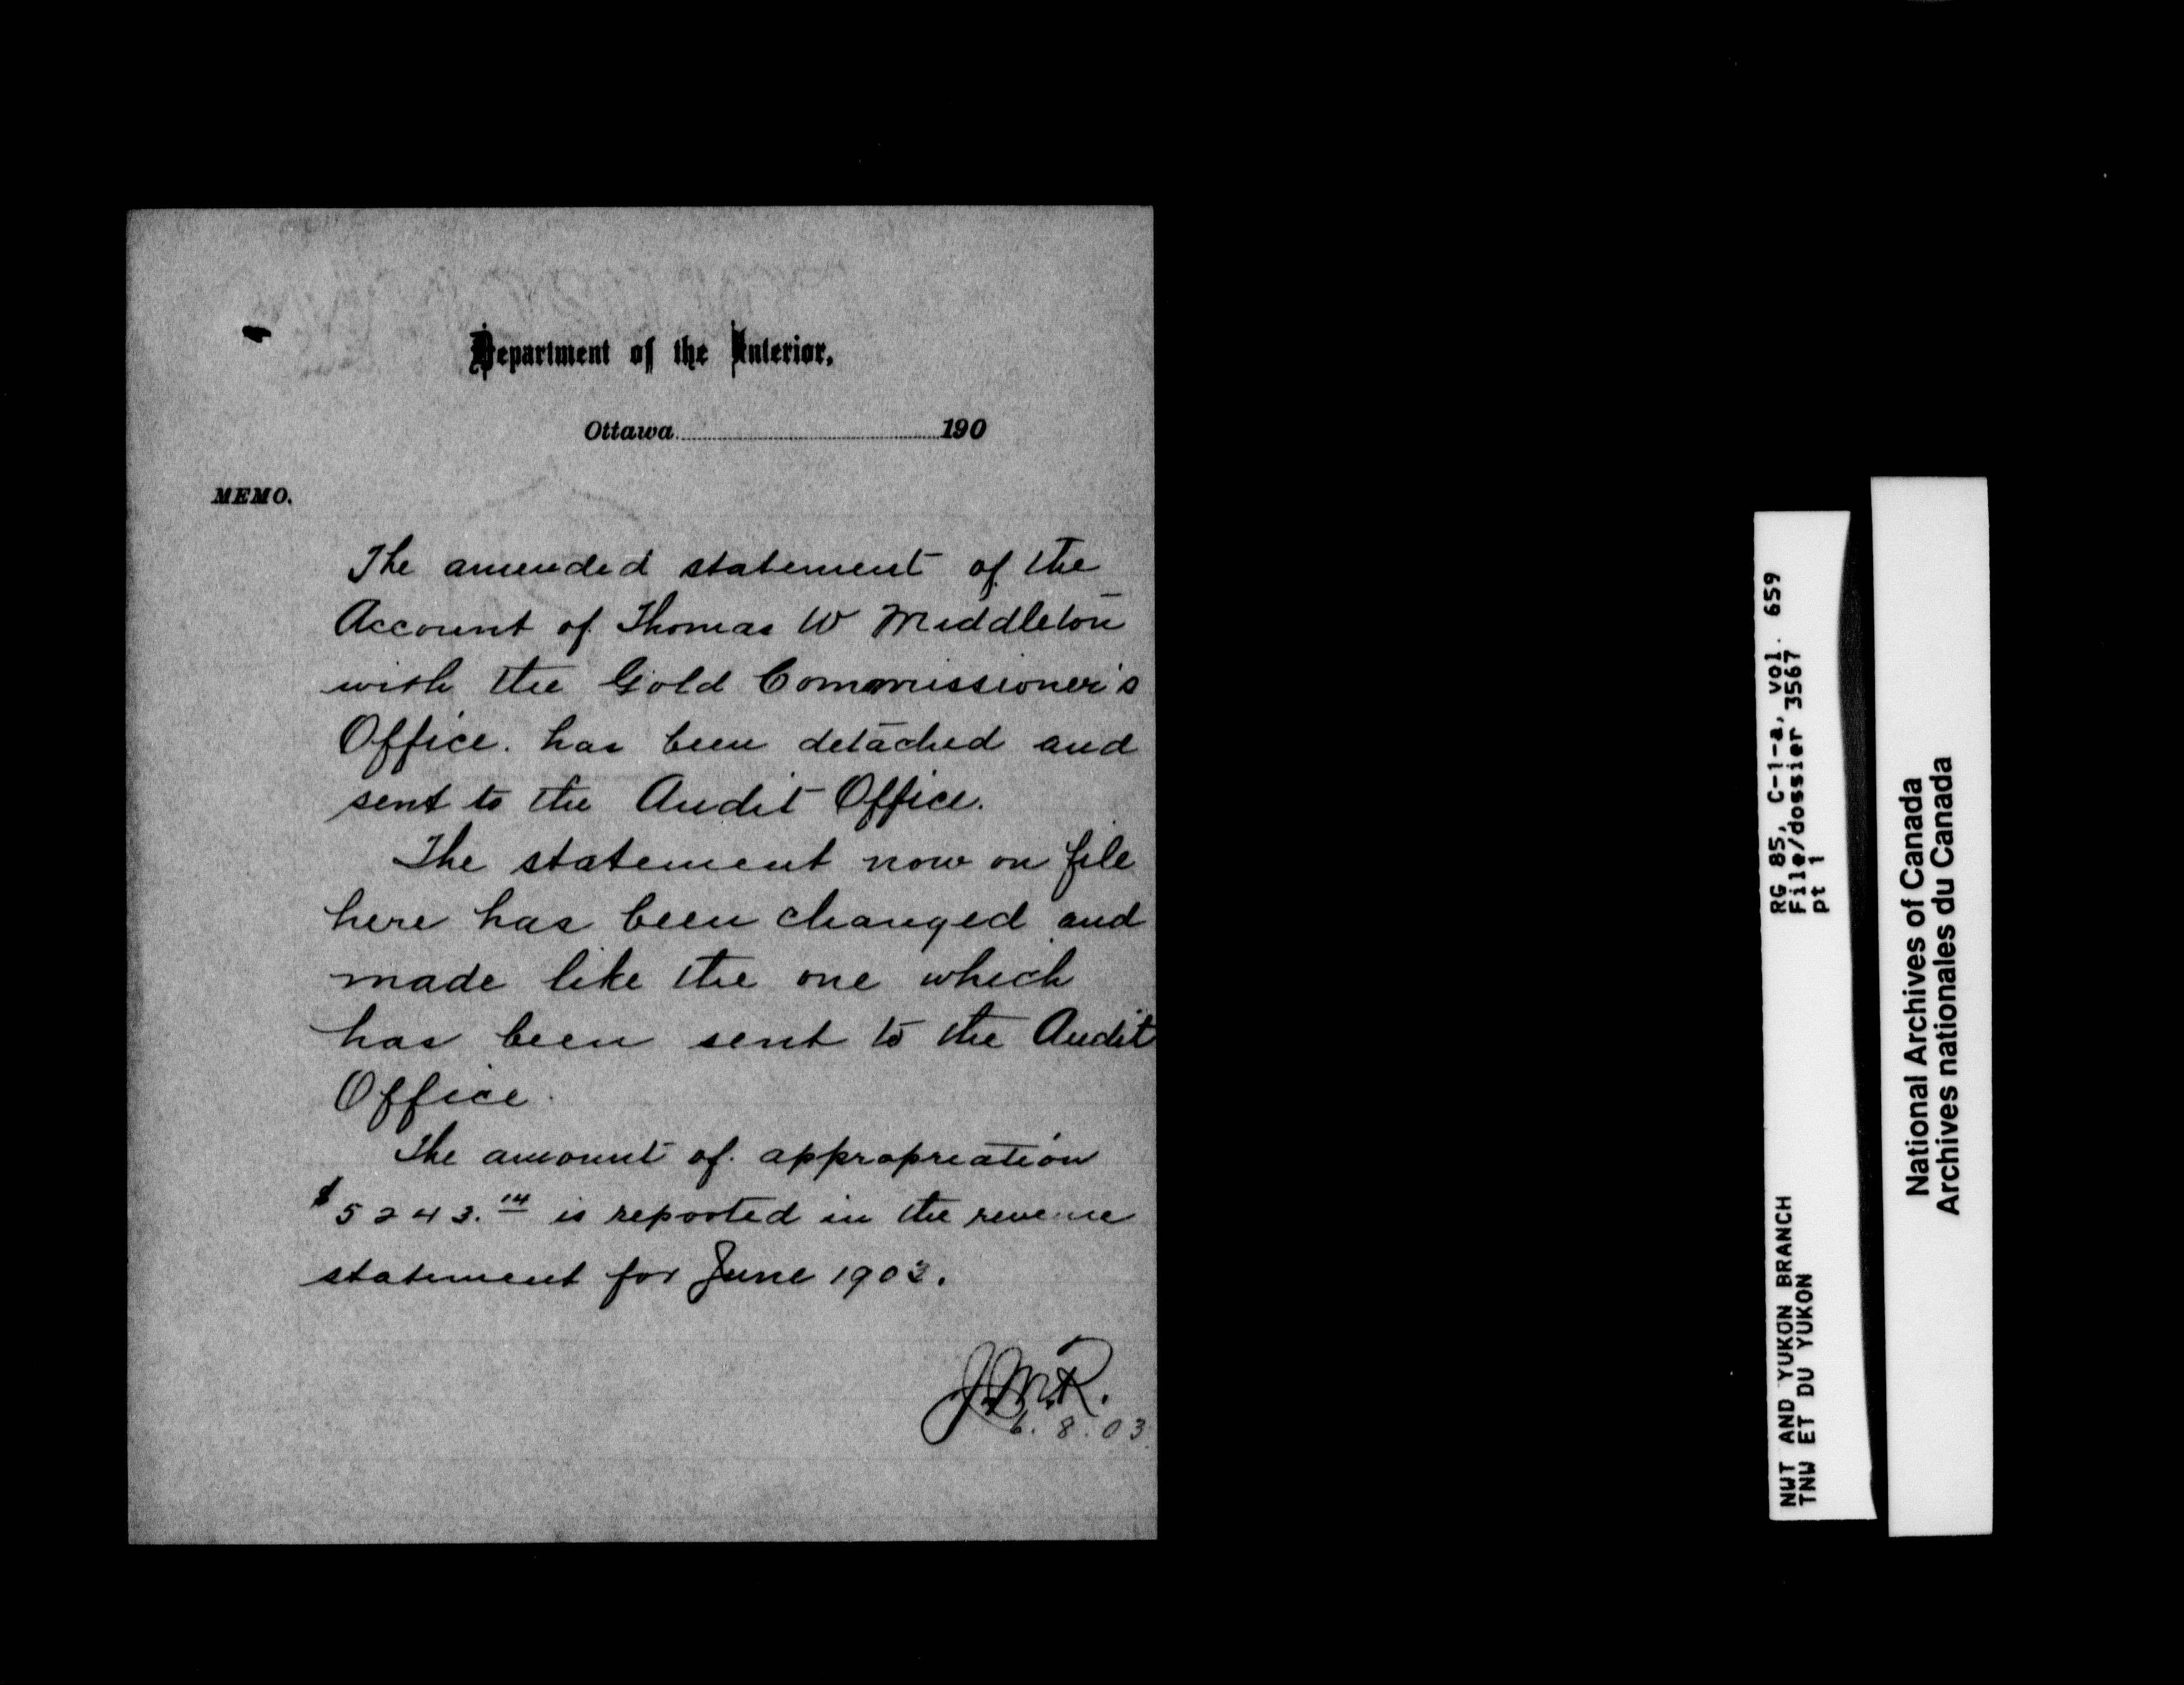 Department of the Interior,
Ottawa 190
MEMO.
The amended statement of the
Account of Thomas W Middleton
with the Gold Commissioner's
Office. has been detached and
sent to the Audit Office.
The statement now on file
here has been changed and
made like the one which
has been sent to the Audit
Office.
The amount of appropriation
$5243.14 is reported in the revenue
statement for June 1903.
J.M.R.
6.8.03.
NWT AND YUKON BRANCH RG 85, C-1-a, vol. 659
TNW ET DU YUKON File/dossier 3567
pt 1
National Archives of Canada
Archives nationales du Canada